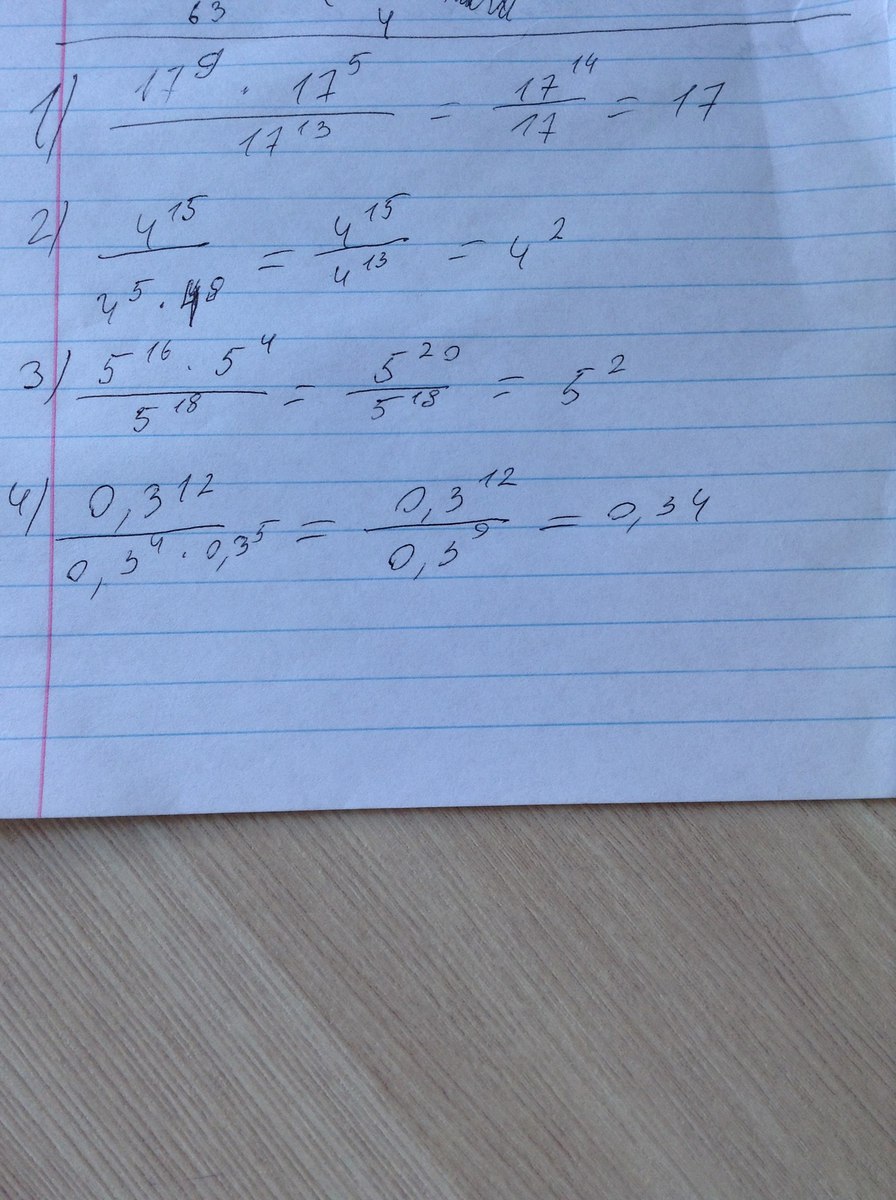 63 4
1) 17⁹ · 17⁵ / 17¹³ = 17¹⁴ / 17 = 17
2) 4¹⁵ / 4⁵ · 4⁸ = 4¹⁵ / 4¹³ = 4²
3) 5¹⁶ · 5⁴ / 5¹⁸ = 5²⁰ / 5¹⁸ = 5²
4) 0,3¹² / 0,3⁴ · 0,3⁵ = 0,3¹² / 0,3⁹ = 0,34